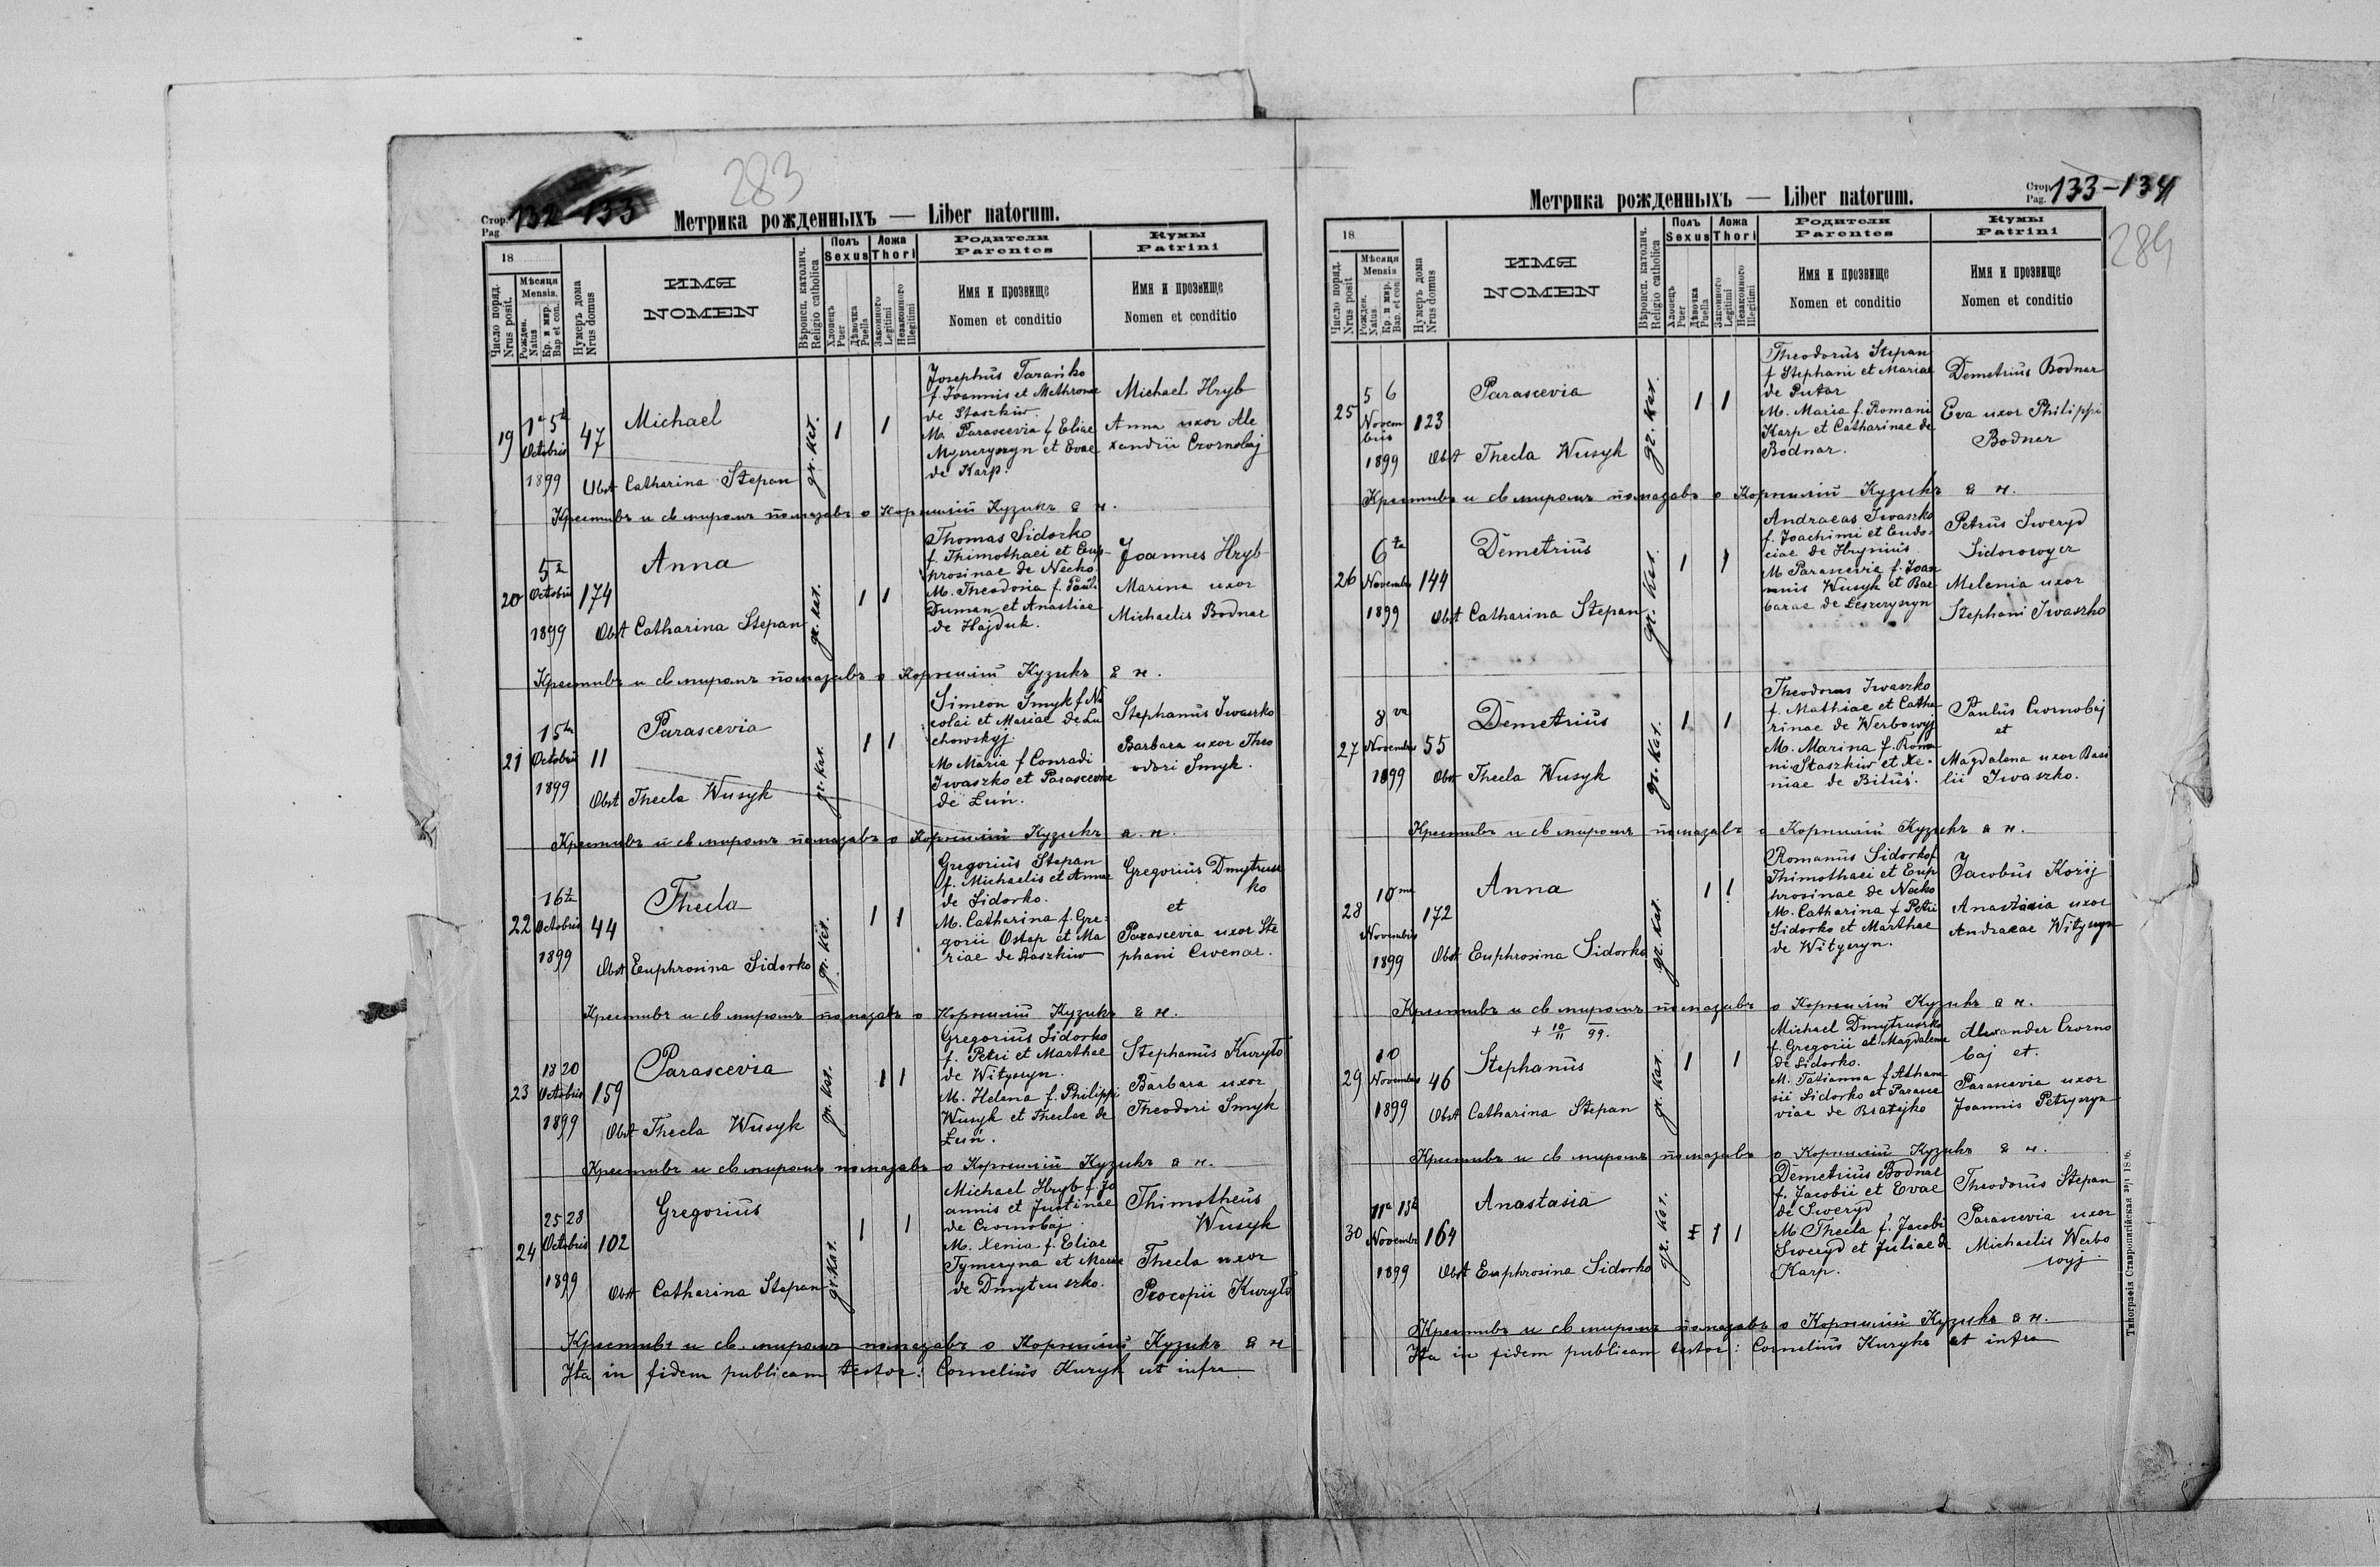 283
Стор. Pag. 132-133
Метрика рожденныхъ — Liber natorum.
18
Число поряд. Nrus posit.
Мѣсяца Mensis.
Рожден. Natus
Кр. и мир. Bap et con.
Нумеръ дома Nrus domus
ИМЯ
NOMEN
Вѣроисп. католич. Religio catholica
Полъ Sexus
Хлопецъ Puer
Дѣвочка Puella
Ложа Thori
Законного Legitimi
Незаконного Illegitimi
Родители
Parentes
Имя и прозвище
Nomen et conditio
Кумы
Patrini
Имя и прозвище
Nomen et conditio
19
1a 5ta
Octobris
1899
47
Michael
Obst Catharina Stepan
gr. kat.
1 1
Josephus Tarańko
f. Joannis et Methronae
de Staszkiw.
M. Parascevia f Eliae
Myszczyszyn et Evae
de Karp.
Michael Hryb
Anna uxor Ale
xandrii Czornobaj
Крестивъ и св мѵромъ помазавъ о Корнилій Кузикъ в н.
20
5ta
Octobris
1899
174
Anna
Obst Catharina Stepan
gr. kat.
1 1
Thomas Sidorko
f. Thimothaei et Eup-
hrosinae de Necko.
M. Theodoria f. Pauli
Duman et Anastiae
de Hajduk.
Joannes Hryb
Marina uxor
Michaelis Bodnar
Крестивъ и св мѵромъ помазавъ о Корнилій Кузикъ в н.
21
15ta
Octobris
1899
11
Parascevia
Obst Thecla Wusyk
gr. kat.
1 1
Simeon Smyk f Ni
colai et Mariae de Lu
chowskyj.
M Maria f Conradi
Iwaszko et Parasceviae
de Łuń.
Stephanus Iwaszko
Barbara uxor Theo
odori Smyk.
Крестивъ и св мѵромъ помазавъ о Корнилій Кузикъ в. н.
22
16ta
Octobris
1899
44
Thecla
Obst Euphrosina Sidorko
gr. kat.
1 1
Gregorius Stepan
f. Michaelis et Annae
de Sidorko.
M. Catharina f. Gre-
gorii Ostap et Ma
riae de Staszkiw
Gregorius Dmytrusz
ko
et
Parascevia uxor Ste
phani Cwenar.
Крестивъ и св мѵромъ помазавъ о Корнилій Кузикъ в н.
23
18 20
Octobris
1899
159
Parascevia
Obst Thecla Wusyk
gr. kat.
1 1
Gregorius Sidorko
f. Petri et Marthae
de Wityszyn.
M. Helena f. Philippi
Wusyk et Theclae de
Łuń.
Stephanus Kuryło
Barbara uxor
Theodori Smyk
Крестивъ и св мѵромъ помазавъ о Корнилій Кузикъ в н.
24
25 28
Octobris
1899
102
Gregorius
Obst Catharina Stepan
gr kat.
1 1
Michael Hryb f. Jo
annis et Justinae
de Czornobaj.
M. Xenia f. Eliae
Tymczyna et Mariae
de Dmytruszko.
Thimotheus
Wusyk
Thecla uxor
Procopii Kuryło
Крестивъ и св. мѵромъ помазавъ о Корнилій Кузикъ в н
Ita in fidem publicam testor: Cornelius Kuzyk ut infra
Стор. Pag. 133-134
284
Метрика рожденныхъ — Liber natorum.
18
Число поряд. Nrus posit
Мѣсяца Mensis
Рожден. Natus.
Кр. и мир. Bap. et con.
Нумеръ дома Nrus domus
ИМЯ
NOMEN
Вѣроисп. католич. Religio catholica
Полъ Sexus
Хлопецъ Puer
Дѣвочка Puella
Ложа Thori
Законного Legitimi
Незаконного Illegitimi
Родители
Parentes
Имя и прозвище
Nomen et conditio
Кумы
Patrini
Имя и прозвище
Nomen et conditio
25
5 6
Novem
bris
1899
123
Parascevia
Obst Thecla Wusyk
gr. kat.
1 1
Theodorus Stepan
f Stephani et Mariae
de Putar
M. Maria f. Romani
Karp et Catharinae de
Bodnar.
Demetrius Bodnar
Eva uxor Philippi
Bodnar
Крестивъ и св мѵромъ помазавъ о Корнилій Кузикъ в н.
26
6ta
Novembris
1899
144
Demetrius
Obst Catharina Stepan
gr. kat.
1 1
Andraeas Iwaszko
f. Joachimi et Eudo-
ciae de Hrynius
M Parascevia f. Joan
nnis Wusyk et Bar
barae de Leszczyszyn
Petrus Sweryd
Sidorowycz
Melania uxor
Stephani Iwaszko
27
8va
Novembris
1899
55
Demetrius
Obst Thecla Wusyk
gr. kat.
1 1
Theodorus Iwaszko
f. Mathiae et Catha
rinae de Werbowyj
M. Marina f. Roma
ni Staszkiw et Xe-
niae de Bilus.
Paulus Czornobaj
et
Magdalena uxor Basi
lii Iwaszko.
Крестивъ и св мѵромъ помазавъ о Корнилій Кузикъ в н.
28
10ma
Novembris
1899
172
Anna
Obst Euphrosina Sidorko
gr. kat.
1 1
Romanus Sidorko f.
Thimothaei et Eup
hrosinae de Necko
M. Catharina f Petri
Sidorko et Marthae
de Wityszyn.
Jacobus Kozij
Anastasia uxor
Andraeae Wityszyn
Крестивъ и св мѵромъ помазавъ о Корнилій Кузикъ в н.
+ 10/11 99.
29
10
Novembris
1899
46
Stephanus
Obst Catharina Stepan
gr. kat.
1 1
Michael Dmytruszko
f. Gregorii et Magdalenae
de Sidorko.
M. Tatianna f Athana
sii Sidorko et Parasce
viae de Bratejko
Alexander Czorno
baj et.
Parascevia uxor
Joannis Petryszyn
Крестивъ и св мѵромъ помазавъ о Корнилій Кузикъ в н.
30
11a 13ta
Novembr
1899
164
Anastasia
Obst Euphrosina Sidorko
gr. kat.
1 1
Demetrius Bodnar
f. Jacobii et Evae
de Sweryd
M. Thecla f. Jacobi
Sweryd et Juliae de
Karp.
Theodorus Stepan
Parascevia uxor
Michaelis Werbo
wyj
Крестивъ и св мѵромъ помазавъ о Корнилій Кузикъ в н.
Ita in fidem publicam testor: Cornelius Kuzyk ut infra
Типографія Ставропигійская